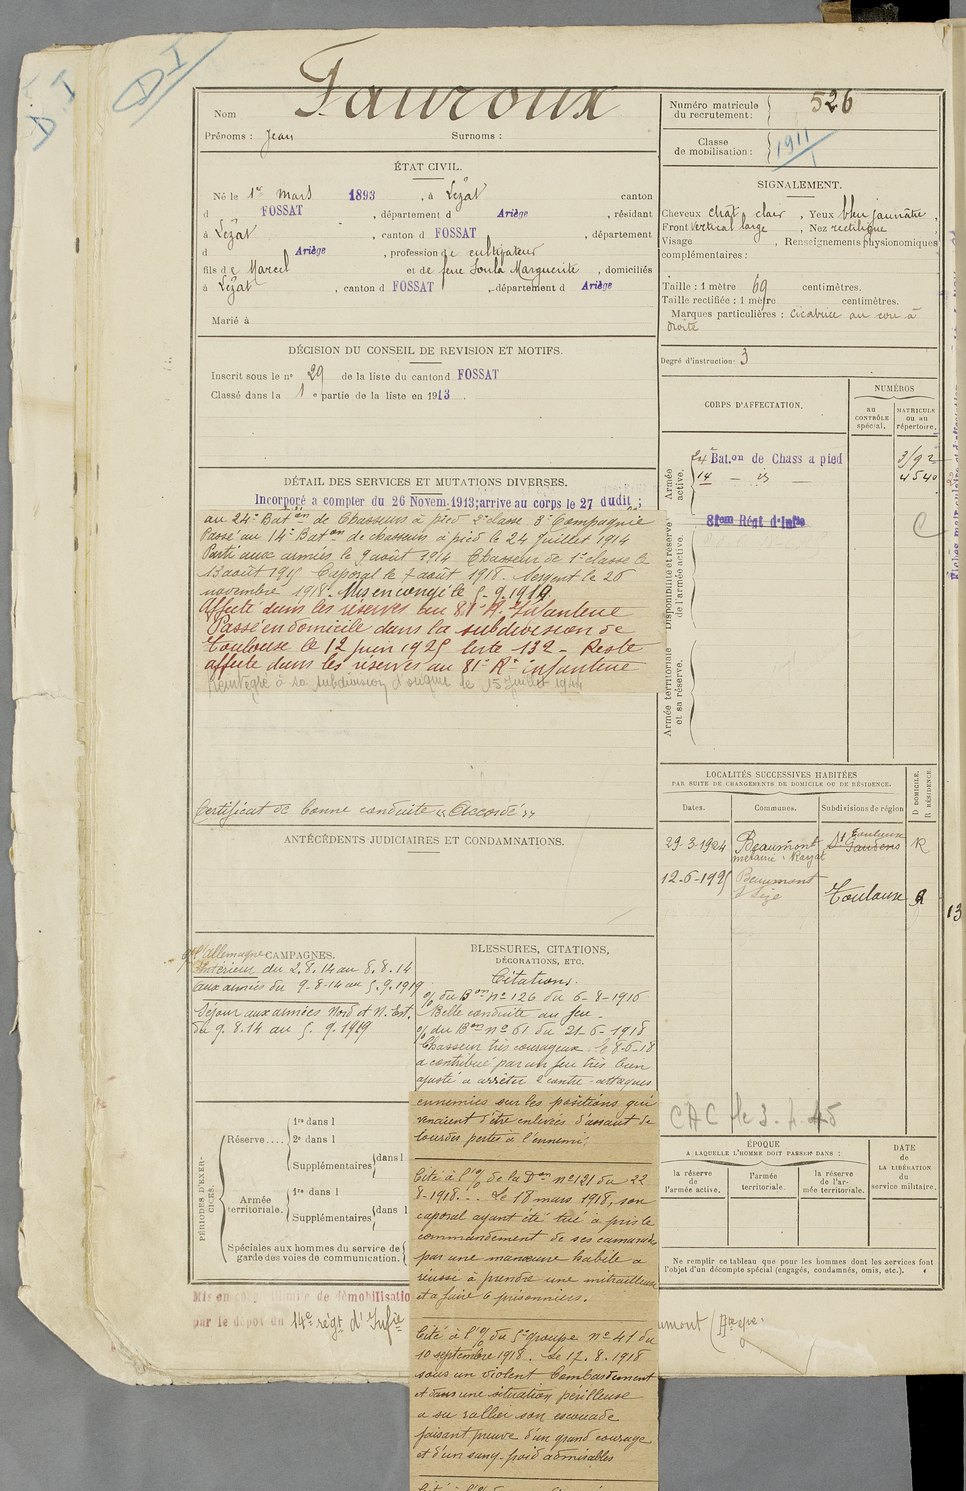 DI
DI
Nom Fauroux
Prénoms : Jean Surnoms :
Numéro matricule du recrutement : 526
Classe de mobilisation : 1911
ÉTAT CIVIL.
Né le 1er mars 1893, à Lézat canton
d FOSSAT, département d Ariège, résidant
à Lézat, canton d FOSSAT, département
d Ariège, profession de cultivateur
fils de Marcel et de feue Soula Marguerite, domiciliés
à Lézat, canton d FOSSAT, département d Ariège
Marié à
SIGNALEMENT.
Cheveux chat. clair, Yeux bleu jaunâtre,
Front vertical large, Nez rectiligne,
Visage , Renseignements physionomiques
complémentaires :
Taille : 1 mètre 69 centimètres.
Taille rectifiée : 1 mètre centimètres.
Marques particulières : cicatrice au cou à
droite
Degré d'instruction : 3
DÉCISION DU CONSEIL DE REVISION ET MOTIFS.
Inscrit sous le no 29 de la liste du canton d FOSSAT
Classé dans la 1e partie de la liste en 1913.
DÉTAIL DES SERVICES ET MUTATIONS DIVERSES.
Incorporé a compter du 26 Novem. 1913; arrive au corps le 27 dudit;
au 24e Baton de Chasseurs à pied 2e classe 3e Compagnie
Passé au 14e Baton de chasseurs à pied le 24 juillet 1914
Parti aux armées le 9 août 1914 Chasseur de 1e classe le
13 août 1915 Caporal le 7 août 1918. Sergent le 26
novembre 1918. Mis en congé le 5.9.1919.
Affecté dans les réserves au 81e R. Infanterie
Passé en domicile dans la subdivision de
Toulouse le 12 juin 1925 liste 132 - Reste
affecté dans les réserves au 81e Rt infanterie
Réintégré à sa subdivision d'origine le 15 juillet 1944
Certificat de bonne conduite "Accordé"
ANTÉCÉDENTS JUDICIAIRES ET CONDAMNATIONS.
CORPS D'AFFECTATION.
NUMÉROS
au CONTRÔLE spécial.
MATRICULE ou au répertoire.
Armée active.
24 Bat.on de Chass a pied 3192
14 - id - 4540
Disponibilité et réserve de l'armée active.
81em Régt d'Infie
C
Armée territoriale et sa réserve.
LOCALITÉS SUCCESSIVES HABITÉES
PAR SUITE DE CHANGEMENTS DE DOMICILE OU DE RÉSIDENCE.
Dates. Communes. Subdivisions de région
D DOMICILE. R RÉSIDENCE.
29.3.1924 Beaumont St Gaudens Toulouse R
métairie
12-6-1925 Beaumont
s/ Lèze Toulouse
13
CAMPAGNES.
Cre l'Allemagne
Intérieur du 2.8.14 au 8.8.14
Aux armées du 9-8-14 au 5.9.1919
Séjour aux armées Nord et N. Est.
du 9.8.14 au 5.9.1919
BLESSURES, CITATIONS,
DÉCORATIONS, ETC.
Citations.
o/o du Bon no 126 du 6-8-1916
Belle conduite au feu -
o/o du Bon no 61 du 21-6-1918
Chasseur très courageux - le 8-6-18
a contribué par un feu très bien
ajusté a arrêter 2 contre-attaques
ennemies sur les positions qui
venaient d'être enlevées d'assaut de
lourdes pertes à l'ennemi.
Cité à l'o/o de la Don no 121 du 22
8-1918... Le 18 mars 1918, son
caporal ayant été tué a pris le
commandement de ses camarades
par une manœuvre habile a
réussi à prendre une mitrailleuse
et a faire 6 prisonniers.
Cité à l'o/o du 5e groupe no 41 du
10 septembre 1918. Le 17.8.1918
sous un violent bombardement
et dans une situation périlleuse
a su rallier son escouade
faisant preuve d'un grand courage
et d'un sang-froid admirables
PÉRIODES D'EXERCICES.
Réserve....
1re dans l
2e dans l
Supplémentaires dans l
Armée territoriale.
1re dans l
Supplémentaires dans l
Spéciales aux hommes du service de
garde des voies de communication.
CAC le 3.4.45
ÉPOQUE
A LAQUELLE L'HOMME DOIT PASSER DANS :
la réserve de l'armée active.
l'armée territoriale.
la réserve de l'armée territoriale.
DATE de LA LIBÉRATION du service militaire.
Ne remplir ce tableau que pour les hommes dont les services font
l'objet d'un décompte spécial (engagés, condamnés, omis, etc.).
Mis en congé illimité de démobilisatio
par le dépôt du 14e régt d'Infie
umont